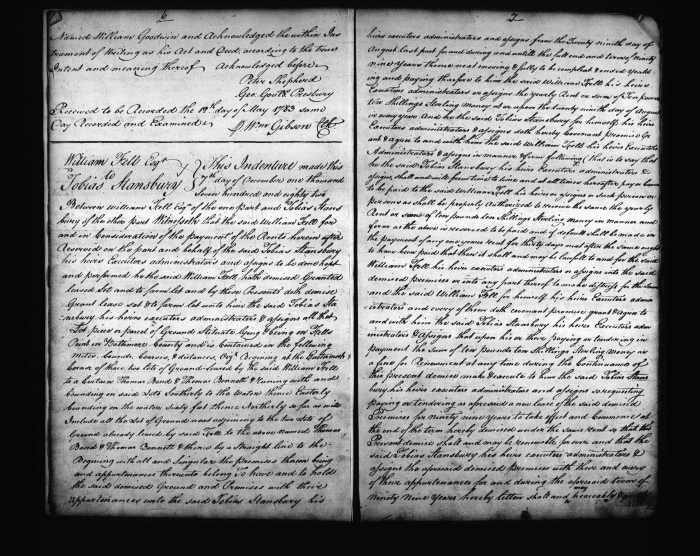 6
Named William Goodwin and Acknowledged the within Ins
trument of Writing as his Act and Deed according to the true
Intent and meaning thereof Acknowledged before
Peter Shepherd
Geo: Goult Presbury
Received to be Recorded the 12th day of May 1783 same
Day Recorded and Examined
Wm Gibson Clk
William Fell Esqr
to
Tobias Stansbury
This Indenture made this
7th day of December one thousand
Seven hundred and eighty two
Between William Fell Esqr of the one part and Tobias Stans
bury of the other part Witnesseth that the said William Fell for
and in Consideration of the payment of the Rents herein after
Reserved on the part and behalf of the said Tobias Stansbury
his heirs Executors administrators and assigns to be done kept
and performed he the said William Fell hath demised Granted
leased Set and to farm let and by these Presents doth demise
Grant lease set & to farm let unto him the said Tobias Sta
nsbury his heirs executors administrators & assigns all that
Lot piece or parcel of Ground Situate lying & being in Fells
Point in Baltimore County and is Contained in the following
metes bounds, Courses, & distances, Viz Begining at the
Corner of these two lots of Ground leased by the said William Fell
to a Certain Thomas Bond & Thomas Bennett & runing with and
bounding on said lots Southerly to the Water thence Easterly
bounding on the water Sixty feet thence Northerly so far as will
Include all the Lot of Ground now adjoining to the two Lots of
Ground already leased by said Fell to the above named Thomas
Bond & Thomas Bennett & thence by a straight line to the
Begining with all and Singular the premises thereon being
and appurtenances thereunto belong To have and to hold
the said demised Ground and Premises with their
appurtenances unto the said Tobias Stansbury his
7
heirs executors administrators and assigns from the Twenty ninth day of
August last past for and during and untill the full end and term of Ninety
Nine Years thence next ensuing & fully to be compleat & ended yeild
ing and paying therefor to him the said William Fell his heirs
Executors administrators or assigns the yearly Rent or sum of Ten pounds
ten Shillings Sterling Money at or upon the twenty ninth day of August
in every year. And he the said Tobias Stansbury for himself his heirs
Executors administrators & assigns doth hereby Covenant promise Gr
ant & agree to and with him the said William Fell his heirs Executors
Administrators & assigns in manner & form following (that is to say) that
he the said Tobias Stansbury his heirs Executors administrators &
assigns shall and will from time to time and at all times hereafter pay or Cause
to be paid to the said William Fell his heirs or assigns or such person or
persons as shall be properly Authorized to receive the same the yearly
Rent or sum of ten pounds ten Shillings Sterling money in manner and
form as the above is reserved to be paid and if default shall be made in
the payment of any one years rent for thirty days next after the same ought
to have been paid that then it shall and may be lawfull to and for the said
William Fell his heirs executors administrators or assigns into the said
demised premises or into any part thereof to make distress for the same
and the said William Fell for himself his heirs Executors admin
istrators and every of them doth covenant promise grant & agree to
and with him the said Tobias Stansbury his heirs Executors adm
inistrators & Assigns that upon his or their paying or tendering in
payment the Sum of ten pounds ten Shillings Sterling Money as
a fine for Renewment at any time during the Continuance of
this present demise make & execute to him the said Tobias Stans
bury his heirs executors administrators and assigns so requesting
paying or tendering as aforesaid a new lease of the said demised
Premises for Ninety nine Years to take effect and Commence at
the end of the term hereby demised under the same rent so that this
Present demise shall and may be renewable for ever and that the
said Tobias Stansbury his heirs executors administrators &
assigns the aforesaid demised Premises with their and every
of their appurtenances for and during the aforesaid term of
Ninety Nine Years hereby letten shall and may peaceably